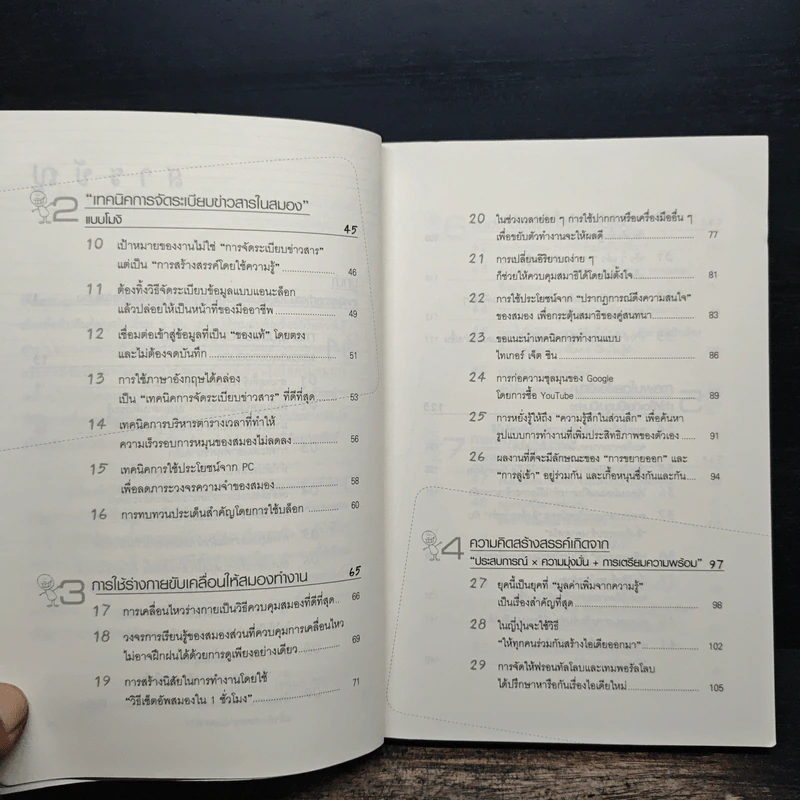 2
"เทคนิคการจัดระเบียบข่าวสารในสมอง"
แบบโมงิ 45
10 เป้าหมายของงานไม่ใช่ "การจัดระเบียบข่าวสาร"
แต่เป็น "การสร้างสรรค์โดยใช้ความรู้" 46
11 ต้องทิ้งวิธีจัดระเบียบข้อมูลแบบแอนะล็อก
แล้วปล่อยให้เป็นหน้าที่ของมืออาชีพ 49
12 เชื่อมต่อเข้าสู่ข้อมูลที่เป็น "ของแท้" โดยตรง
และไม่ต้องจดบันทึก 51
13 การใช้ภาษาอังกฤษได้คล่อง
เป็น "เทคนิคการจัดระเบียบข่าวสาร" ที่ดีที่สุด 53
14 เทคนิคการบริหารตารางเวลาที่ทำให้
ความเร็วรอบการหมุนของสมองไม่ลดลง 56
15 เทคนิคการใช้ประโยชน์จาก PC
เพื่อลดภาระวงจรความจำของสมอง 58
16 การทบทวนประเด็นสำคัญโดยการใช้บล็อก 60
3 การใช้ร่างกายขับเคลื่อนให้สมองทำงาน 65
17 การเคลื่อนไหวร่างกายเป็นวิธีควบคุมสมองที่ดีที่สุด 66
18 วงจรการเรียนรู้ของสมองส่วนที่ควบคุมการเคลื่อนไหว
ไม่อาจฝึกฝนได้ด้วยการดูเพียงอย่างเดียว 69
19 การสร้างนิสัยในการทำงานโดยใช้
"วิธีเซ็ตอัพสมองใน 1 ชั่วโมง" 71
20 ในช่วงเวลาย่อย ๆ การใช้ปากกาหรือเครื่องมืออื่น ๆ
เพื่อขยับตัวทำงานจะให้ผลดี 77
21 การเปลี่ยนอิริยาบถง่าย ๆ
ก็ช่วยให้ควบคุมสมาธิได้โดยไม่ตั้งใจ 81
22 การใช้ประโยชน์จาก "ปรากฏการณ์ดึงความสนใจ"
ของสมอง เพื่อกระตุ้นสมาธิของคู่สนทนา 83
23 ขอแนะนำเทคนิคการทำงานแบบ
ไทเกอร์ เจ็ต ชิน 86
24 การก่อความชุลมุนของ Google
โดยการซื้อ YouTube 89
25 การหยั่งรู้ให้ถึง "ความรู้สึกในส่วนลึก" เพื่อค้นหา
รูปแบบการทำงานที่เพิ่มประสิทธิภาพของตัวเอง 91
26 ผลงานที่ดีจะมีลักษณะของ "การขยายออก" และ
"การลู่เข้า" อยู่ร่วมกัน และเกื้อหนุนซึ่งกันและกัน 94
4 ความคิดสร้างสรรค์เกิดจาก
"ประสบการณ์ × ความมุ่งมั่น + การเตรียมความพร้อม" 97
27 ยุคนี้เป็นยุคที่ "มูลค่าเพิ่มจากความรู้"
เป็นเรื่องสำคัญที่สุด 98
28 ในญี่ปุ่นจะใช้วิธี
"ให้ทุกคนร่วมกันสร้างไอเดียออกมา" 102
29 การจัดให้ฟรอนทัลโลบและเทมพอรัลโลบ
ได้ปรึกษาหารือกันเรื่องไอเดียใหม่ 105